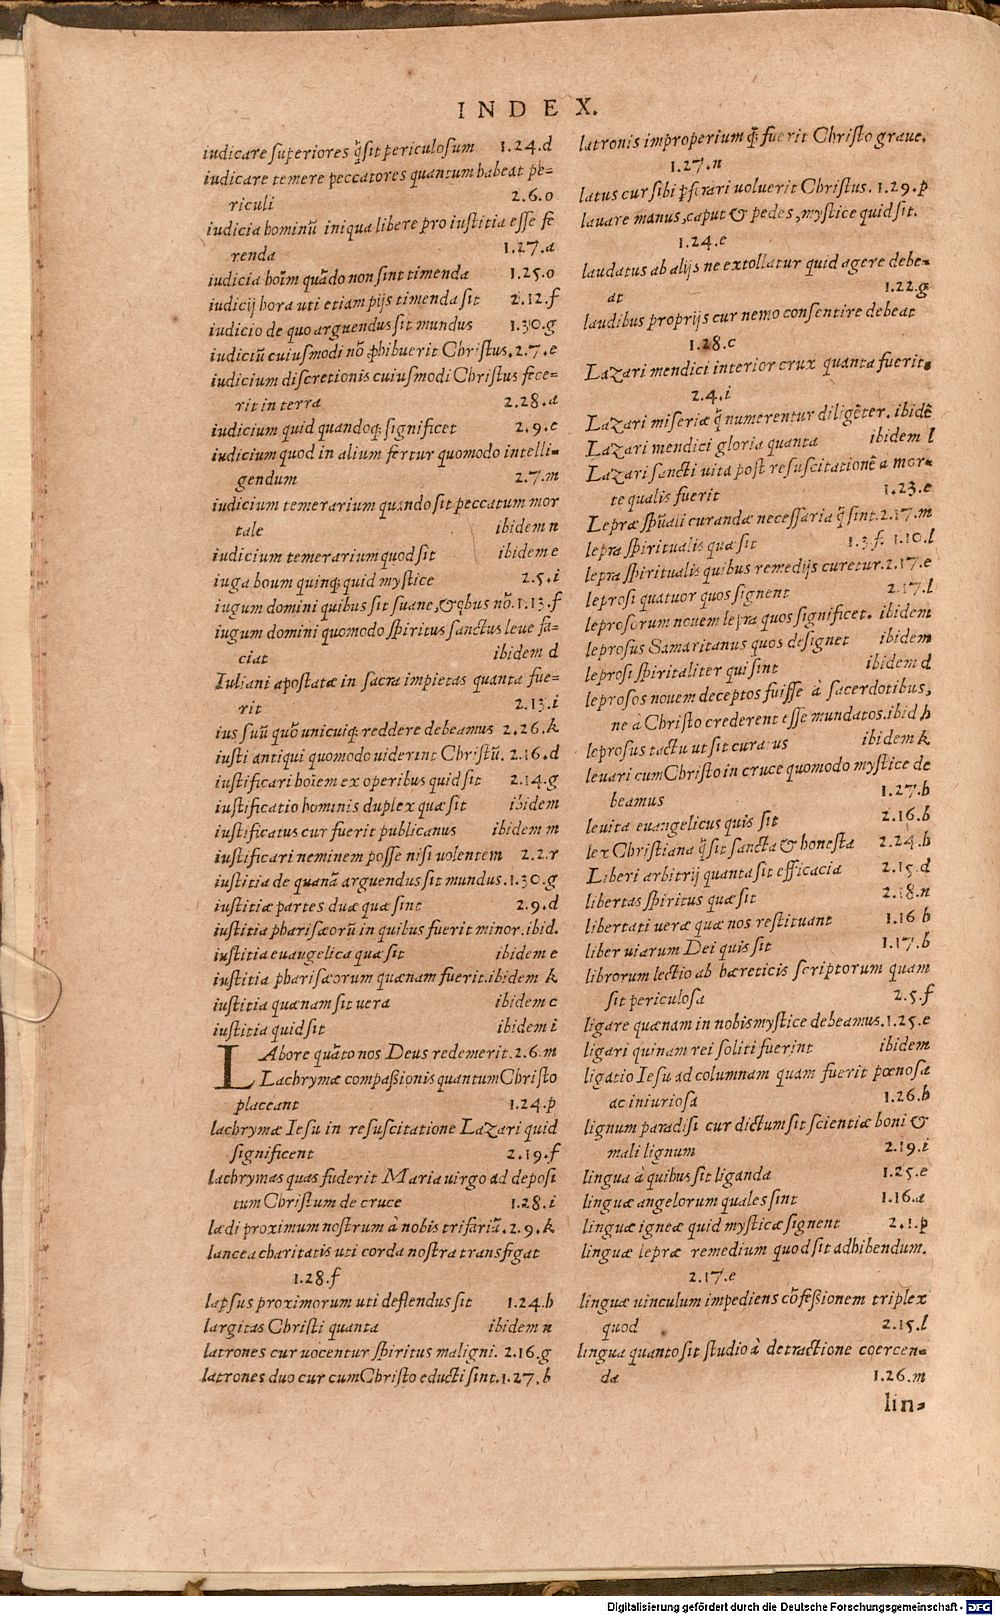 INDEX.
iudicare superiores q̃ sit periculosum 1.24.d
iudicare temere peccatores quantum habeat pe=
riculi 2.6.o
iudicia hominũ iniqua libere pro iustitia esse fe
renda 1.27.a
iudicia hoĩm quãdo non sint timenda 1.25.o
iudicij hora uti etiam pijs timenda sit 2.12.f
iudicio de quo arguendus sit mundus 1.30.g
iudiciũ cuiusmodi nõ ꝓhibuerit Christus. 2.7.e
iudicium discretionis cuiusmodi Christus fece=
rit in terra 2.28.a
iudicium quid quandoq; significet 2.9.c
iudicium quod in alium fertur quomodo intelli=
gendum 2.7.m
iudicium temerarium quando sit peccatum mor
tale ibidem n
iudicium temerarium quod sit ibidem e
iuga boum quinq; quid mystice 2.5.i
iugum domini quibus sit suaue, & q̃bus nõ. 1.13.f
iugum domini quomodo spiritus sanctus leue fa=
ciat ibidem d
Iuliani apostatæ in sacra impietas quanta fue=
rit 2.13.i
ius suũ quõ unicuiq; reddere debeamus 2.26.k
iusti antiqui quomodo uiderint Christũ. 2.16.d
iustificari hoĩem ex operibus quid sit 2.14.g
iustificatio hominis duplex quæ sit ibidem
iustificatus cur fuerit publicanus ibidem m
iustificari neminem posse nisi uolentem 2.2.r
iustitia de quanã arguendus sit mundus. 1.30.g
iustitiæ partes duæ quæ sint 2.9.d
iustitia pharisæorũ in quibus fuerit minor. ibid.
iustitia euangelica quæ sit ibidem e
iustitia pharisæorum quænam fuerit. ibidem k
iustitia quænam sit uera ibidem c
iustitia quid sit ibidem i
LAbore quãto nos Deus redemerit. 2.6.m
Lachrymæ compaßionis quantum Christo
placeant 1.24.p
lachrymæ Iesu in resuscitatione Lazari quid
significent 2.19.f
lachrymas quas fuderit Maria uirgo ad deposi
tum Christum de cruce 1.28.i
lædi proximum nostrum à nobis trifariã. 2.9.k
lancea charitatis uti corda nostra transfigat
1.28.f
lapsus proximorum uti deflendus sit 1.24.b
largitas Christi quanta ibidem n
latrones cur uocentur spiritus maligni. 2.16.g
latrones duo cur cum Christo educti sint. 1.27.b
latronis improperium q̃ fuerit Christo graue.
1.27.n
latus cur sibi ꝑforari uoluerit Christus. 1.29.p
lauare manus, caput & pedes, mystice quid sit.
1.24.e
laudatus ab alijs ne extollatur quid agere debe=
at 1.22.g
laudibus proprijs cur nemo consentire debeat
1.28.c
Lazari mendici interior crux quanta fuerit.
2.4.i
Lazari miseriæ q̃ numerentur diligẽter. ibidẽ
Lazari mendici gloria quanta ibidem l
Lazari sancti uita post resuscitationẽ a mor=
te qualis fuerit 1.23.e
Lepræ spũali curandæ necessaria q̃ sint. 2.17.m
lepra spiritualis quæ sit 1.3.f. 1.10.l
lepra spiritualis quibus remedijs curetur. 2.17.e
leprosi quatuor quos signent 2.17.l
leprosorum nouem lepra quos significet. ibidem
leprosus Samaritanus quos designet ibidem
leprosi spiritaliter qui sint ibidem d
leprosos nouem deceptos fuisse à sacerdotibus,
ne à Christo crederent esse mundatos. ibid h
leprosus tactu ut sit curatus ibidem k
leuari cum Christo in cruce quomodo mystice de
beamus 1.27.b
leuita euangelicus quis sit 2.16.b
lex Christiana q̃ sit sancta & honesta 2.24.b
Liberi arbitrij quanta sit efficacia 2.15.d
libertas spiritus quæ sit 2.18.n
libertati ueræ quæ nos restituant 1.16 b
liber uiarum Dei quis sit 1.17.b
librorum lectio ab hæreticis scriptorum quam
sit periculosa 2.5.f
ligare quænam in nobis mystice debeamus. 1.25.e
ligari quinam rei soliti fuerint ibidem
ligatio Iesu ad columnam quam fuerit pœnosa
ac iniuriosa 1.26.b
lignum paradisi cur dictum sit scientiæ boni &
mali lignum 2.19.i
lingua à quibus sit liganda 1.25.e
linguæ angelorum quales sint 1.16.a
linguæ igneæ quid mysticæ signent 2.1.p
linguæ lepræ remedium quod sit adhibendum.
2.17.e
linguæ uinculum impediens cõfeßionem triplex
quod 2.15.l
lingua quanto sit studio à detractione coercen=
da 1.26.m
lin=
Digitalisierung gefördert durch die Deutsche Forschungsgemeinschaft - DFG